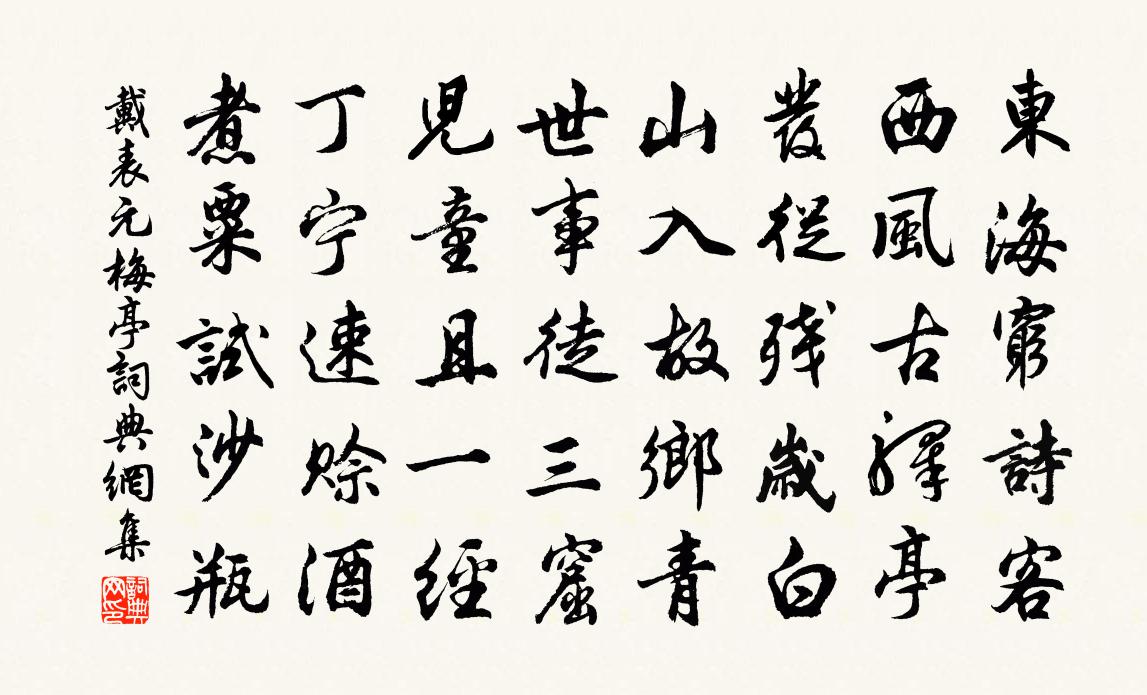 東海窮詩客
西風古驛亭
發從殘歲白
山入故鄉青
世事徒三窟
兒童且一經
丁宁速賒酒
煮粟試沙瓶
戴表元梅亭詞典網集
詞典網印